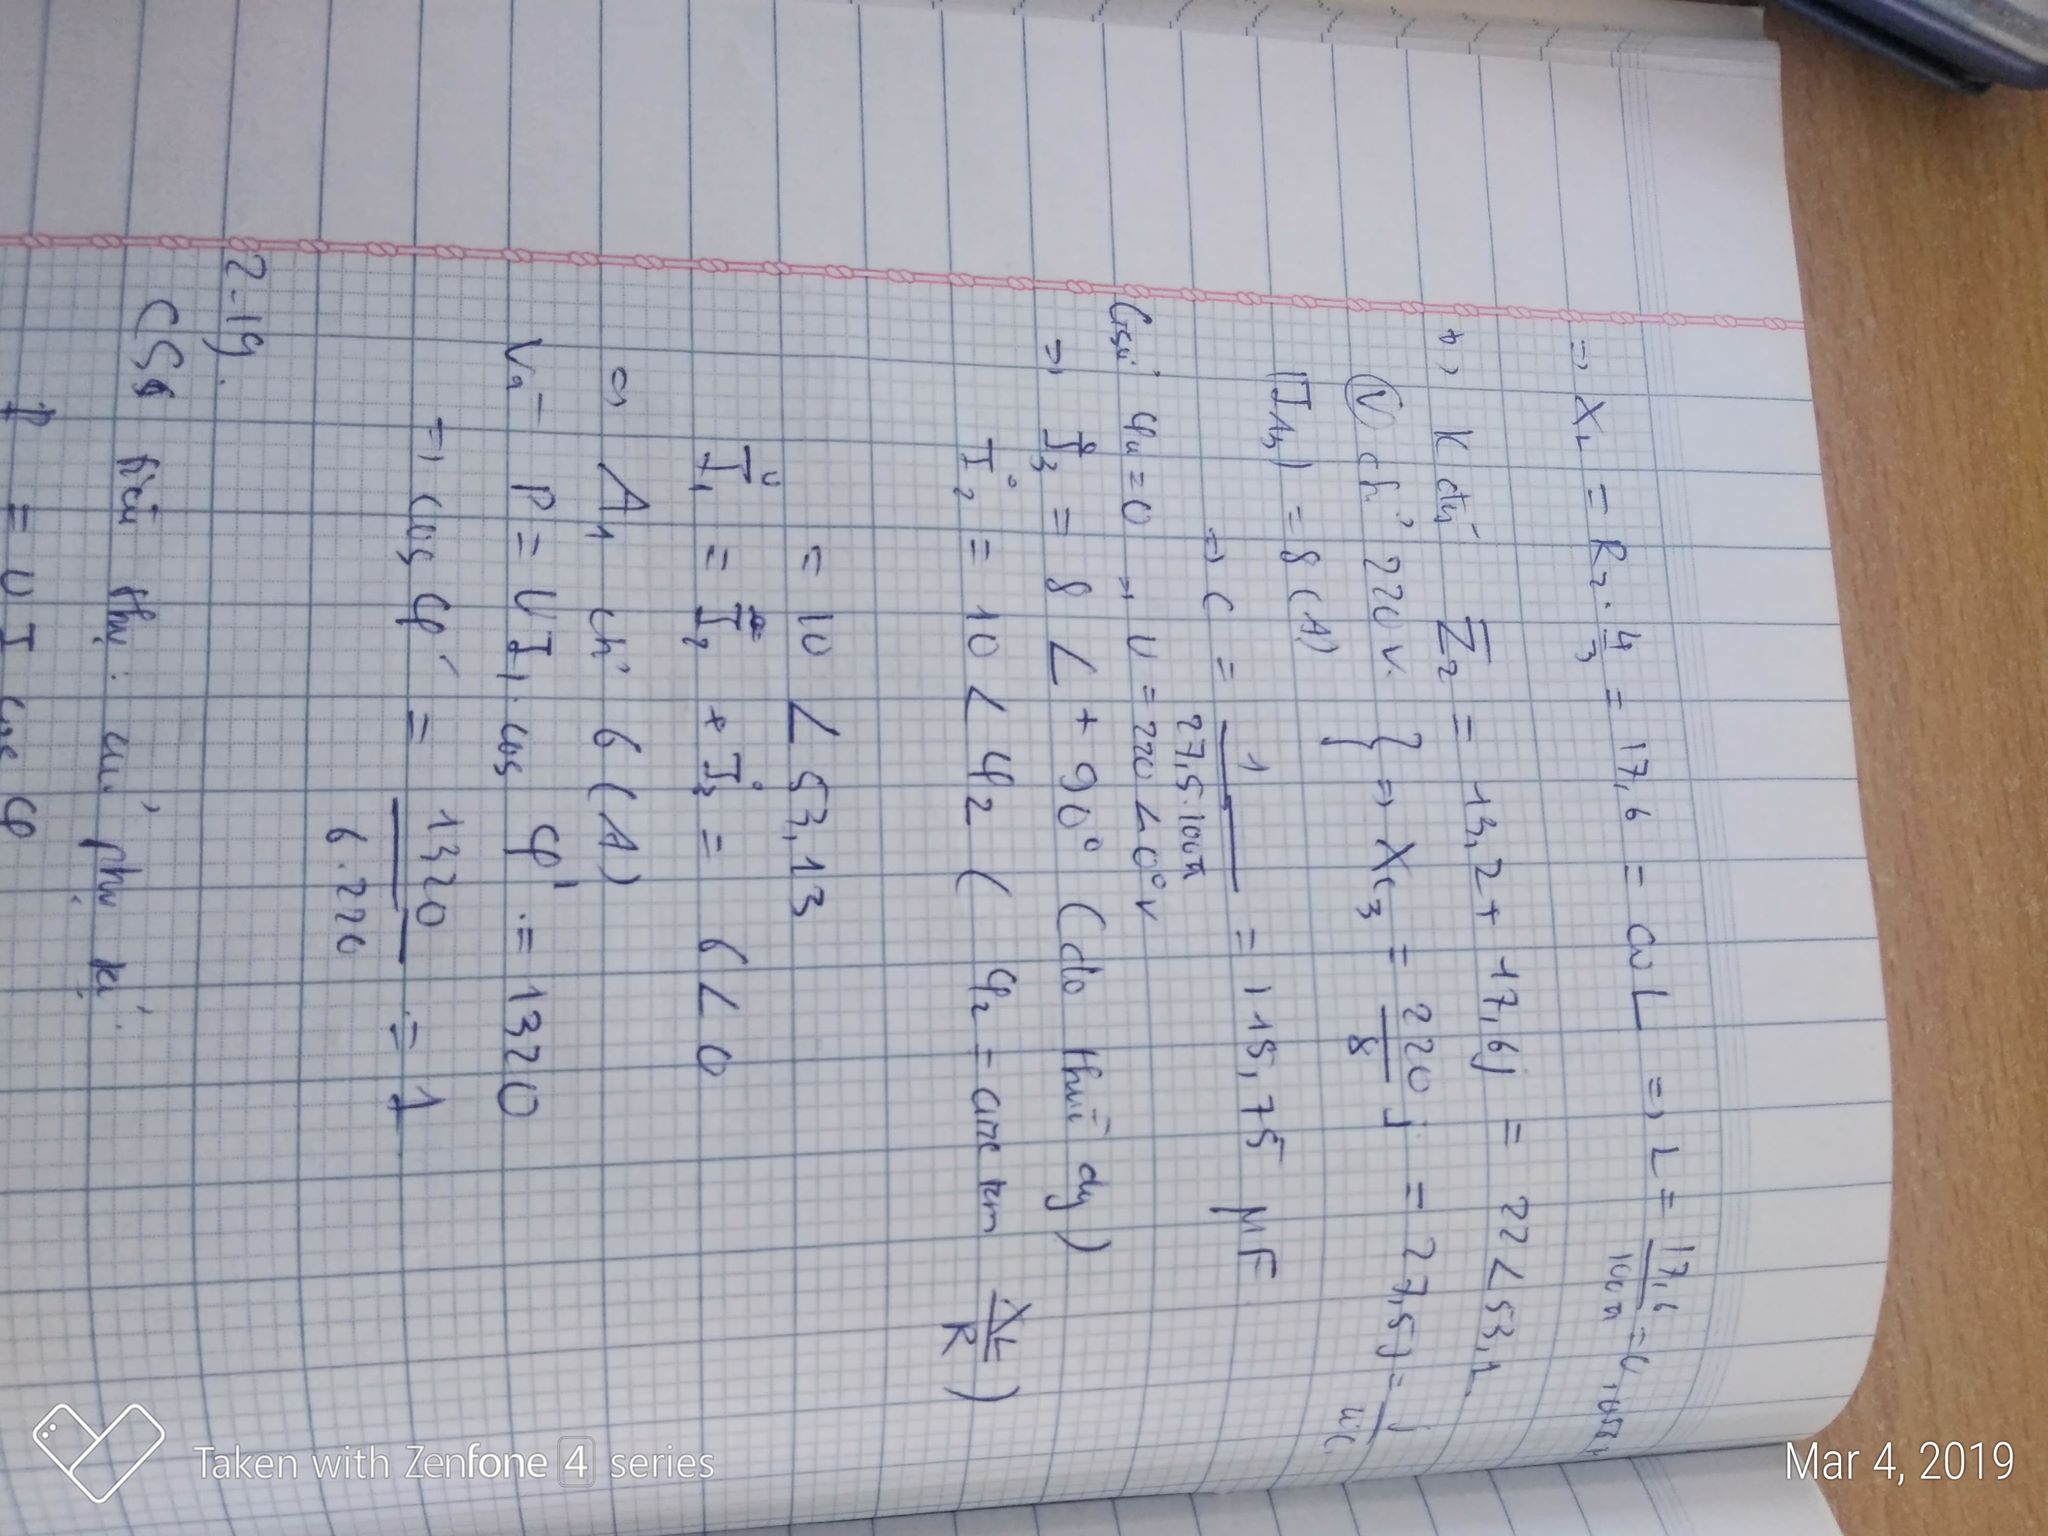 => XL = R2 . 4/3 = 17,6 = ωL => L = 17,6/100π = 0,056 H
b, K đóng Z2 = 13,2 + 17,6j = 22 ∠53,1
(V) chỉ 220 V. } => XC3 = 220/8 j = 27,5j = j/ωC
|IA3| = 8 (A)
=> C = 1/27,5.100π = 115,75 μF
Gsử φu = 0 => U = 220 ∠0° V
=> I3 = 8 ∠ +90° (do
I2 = 10 ∠ φ2 ( φ2 = arc tan XL/R )
= 10 ∠ 53,13
I1 = I2 + I3 = 6 ∠ 0
=> A1 chỉ 6 (A)
Và P = UI1.cos φ' = 1320
=> cos φ' = 1320/6.220 = 1
2-19.
CS tiêu thụ của phụ
P = U I cos φ
Mar 4, 2019
Taken with Zenfone 4 series